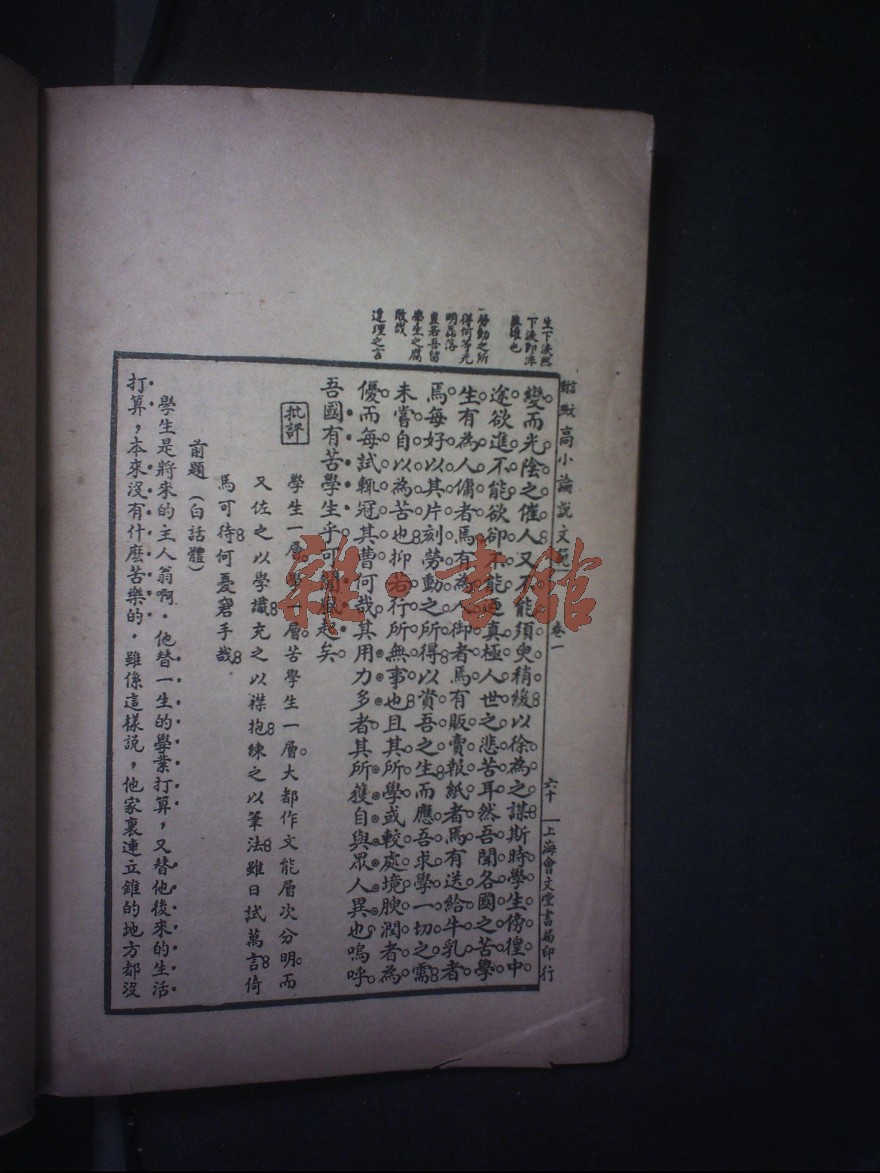 生下淚然
下淚即非
英雄也
一勞動之所
得何等光
明磊落
直若吾留
學生之腐
敗哉
達理之言
高小論說文範
卷一
六十
上海會文堂書局印行
變而光陰之催人又不能須臾稍緩以徐為之謀斯時學生傍徨中
途欲進不能欲卻不能迺真極人世之悲苦耳然吾聞各國之苦學
生有為人傭者焉有為人御者焉有販賣報紙者焉有送給牛乳者
焉每好以其片刻勞動之所得以賞吾之生而應吾求學一切之需
未嘗自以為苦也抑若行所無事也且其所學或較處境腴潤者為
優而每試輒冠其曹何哉其用力多者其所獲自與眾人異也嗚呼
吾國有苦學生乎可聞風起矣
批評
學生一層學一層苦學生一層大都作文能層次分明而
又佐之以學識充之以襟抱練之以筆法雖日試萬言倚
馬可待何憂窘手哉
前題（白話體）
學生是將來的主人翁啊．他替一生的學業打算，又替他後來的生活
打算，本來沒有什麽苦樂的，雖係這樣說，他家裏連立錐的地方都沒
雜·書館